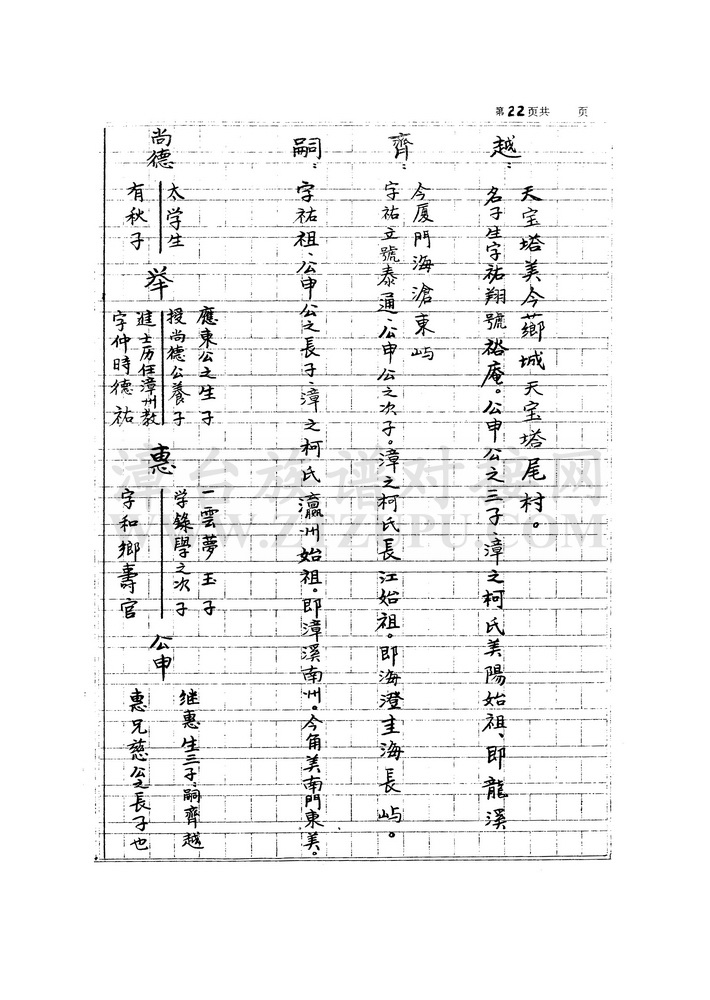 第22页共 页
尚德
有秋子
太学生
举
字仲時德祐
進士历任漳州教
授尚德公養子
應東公之生子
惠
字和鄉壽官
学錄學之次子
一雲夢玉子
公申
惠兄慈公之長子也
继惠生三子嗣齊越
嗣：字祐祖、公申公之長子、漳之柯氏瀛州始祖。即漳溪南州。今角美南門東美。
齊：字祐立號泰通、公申公之次子。漳之柯氏長江始祖。即海澄圭海長屿。
今厦門海滄東屿
越：名子生字祐翔號裕庵。公申公之三子、漳之柯氏美陽始祖、即龍溪
天宝塔美今薌城天宝塔尾村。
漳台族谱对接网
WWW.ZTZUPU.COM